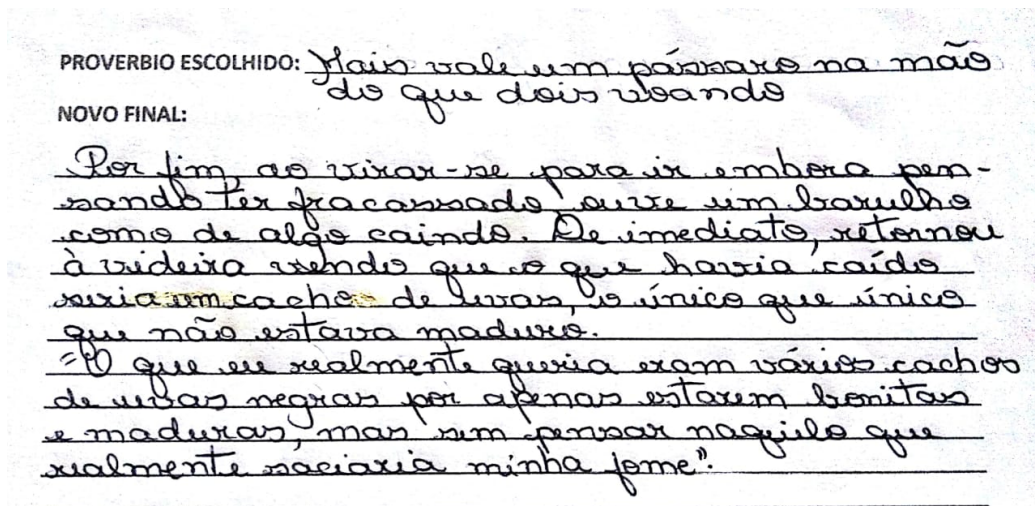 PROVERBIO ESCOLHIDO: Mais vale um pássaro na mão
do que dois voando
NOVO FINAL:
Por fim, ao virar-se para ir embora pen-
sando ter fracassado, ouve um barulho
como de algo caindo. De imediato, retornou
à videira vendo que o que havia caído
seria um cacho de uvas, o único que único
que não estava maduro.
"O que eu realmente queria eram vários cachos
de uvas negras por apenas estarem bonitas
e maduras, mas sem pensar naquilo que
realmente saciaria minha fome".